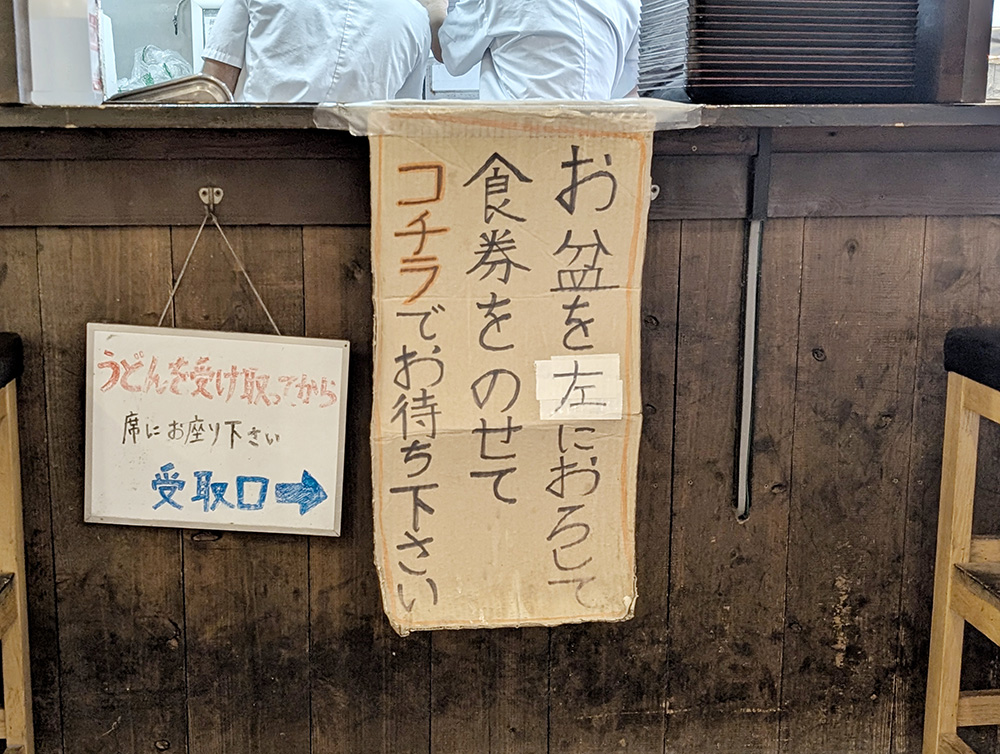 お盆を左におろして
食券をのせて
コチラでお待ち下さい
うどんを受け取ってから
席にお座り下さい
受取口➡